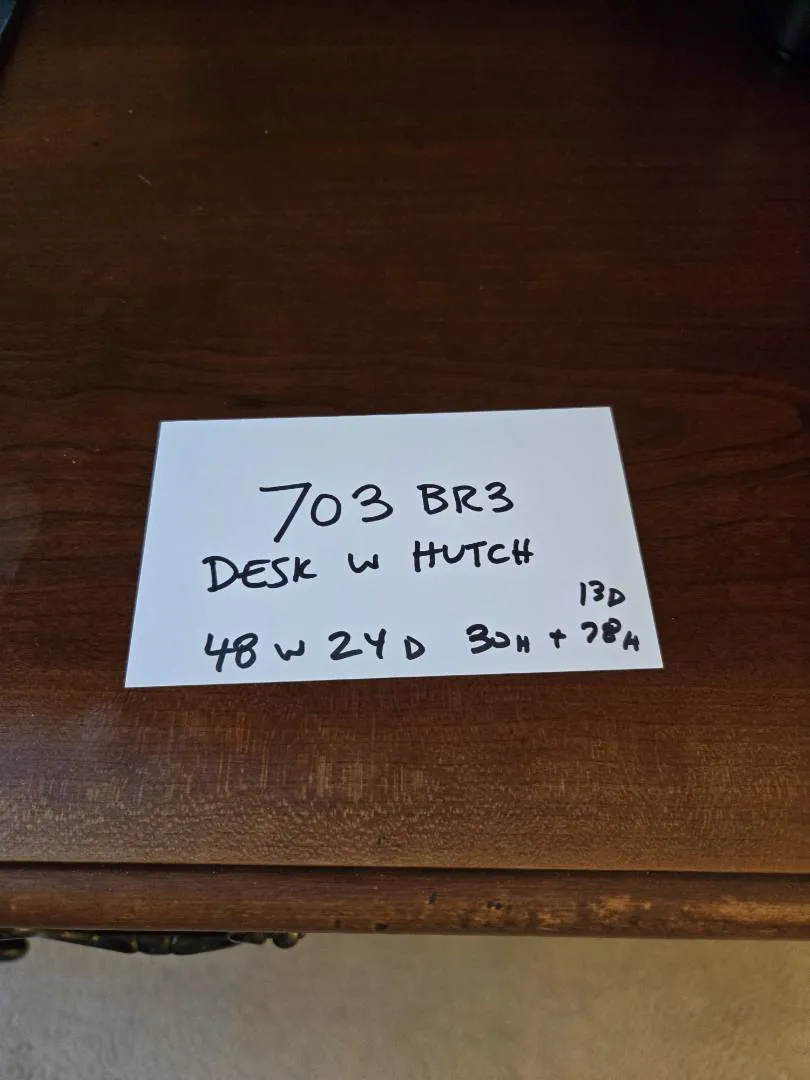 703 BR3
DESK W HUTCH
13D
48 W 24 D 30H + 78H